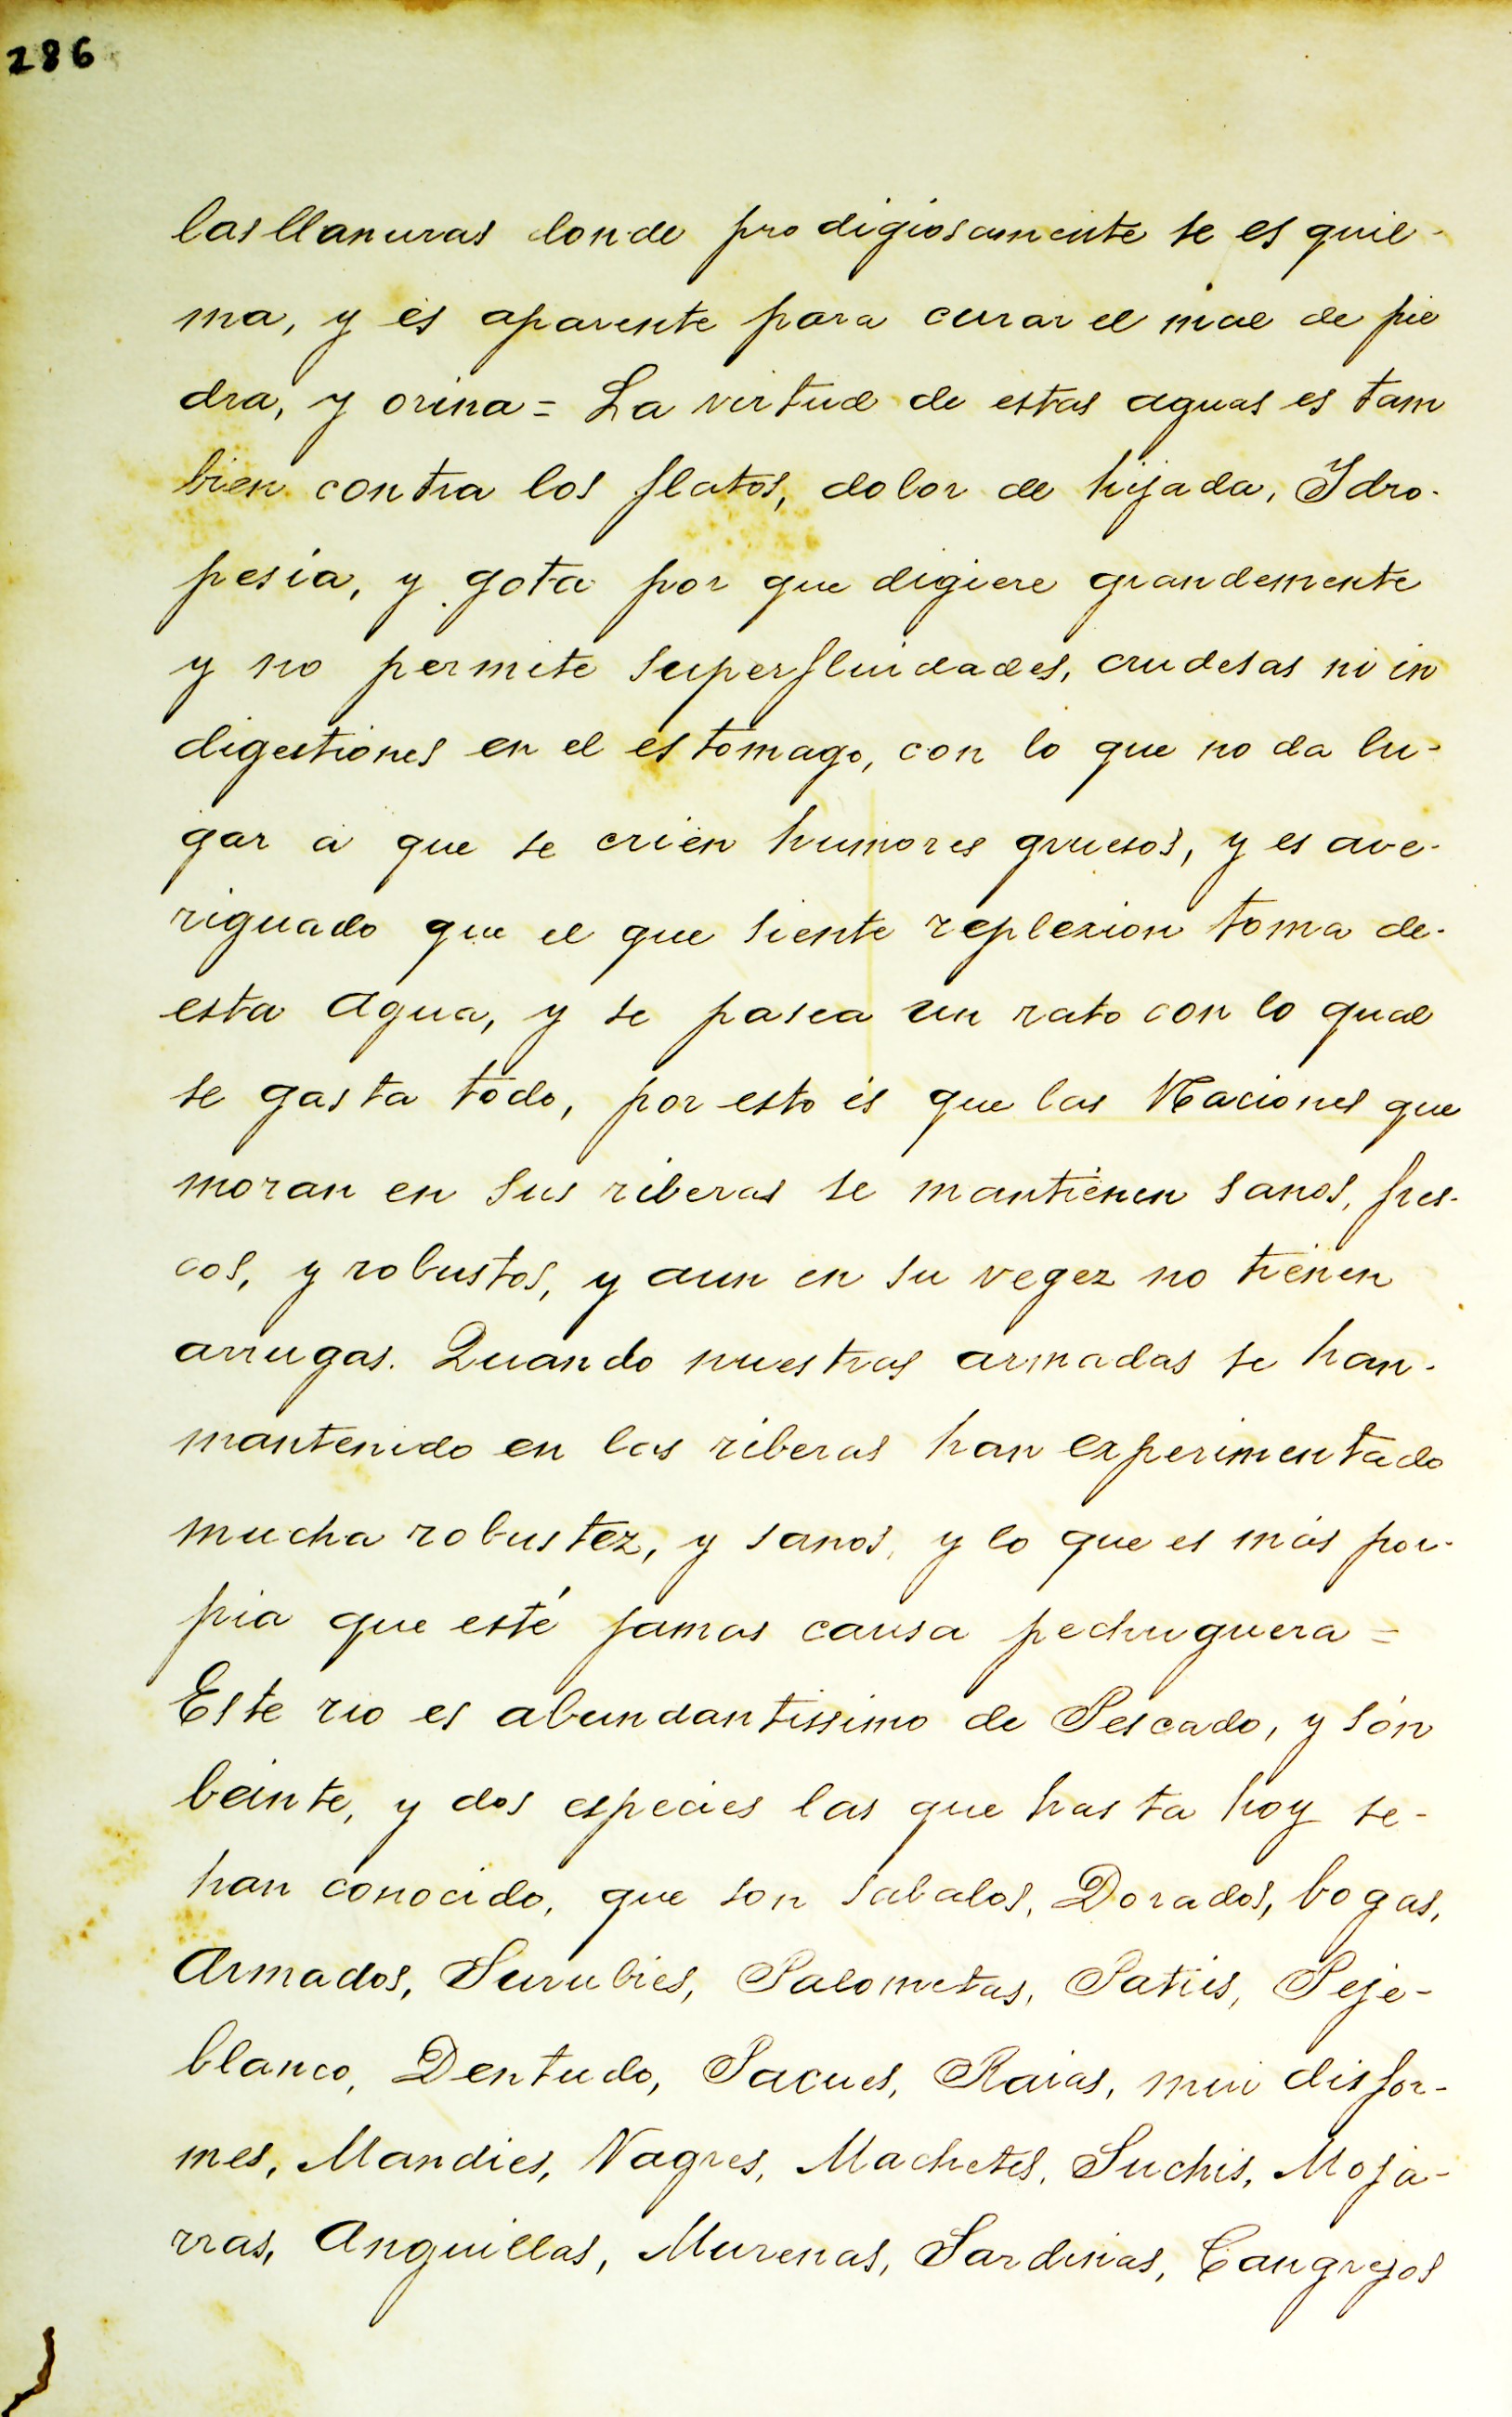 286
las llanuras donde prodigiosamente se es quil-
ma, y es aparente para currar el mal de pie
dra, y orina = La virtud de estas aguas es tam
bien contra los flatos, dolor de hijada, Ydro-
pesia, y gota por que digiere grandemente
y no permite superfluidades, crudesas ni in
digestiones en el estomago, con lo que no da lu-
gar a que se crien humores gruesos, y es ave-
riguado que el que siente replexion toma de-
esta agua, y se pasea un rato con lo qual
se gasta todo, por esto es que las Naciones que
moran en sus riberas se mantienen sanos, fres-
cos, y robustos, y aun en su vegez no tienen
arrugas. Quando nuestras armadas se han-
mantenido en las riberas han experimentado
mucha robustez, y sanos, y lo que es más por-
pia que esté jamas causa pechuguera =
Este rio es abundantissimo de Pescado, y són
beinte, y dos especies las que hasta hoy se-
han conocido, que son sabalos, Dorados, bogas,
Armados, Surubies, Palometas, Paties, Peje-
blanco, Dentudo, Pacues, Raias, mui disfor-
mes, Mandies, Vagres, Machetes, Suchis, Moja-
rras, Anguillas, Murenas, Sardinas, Cangrejos